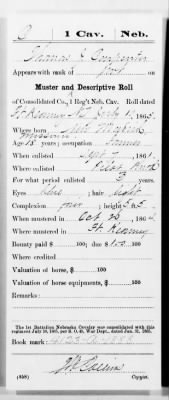 C | 1 Cav. | Neb.
Thomas J Carpenter
Appears with rank of Pvt on
Muster and Descriptive Roll
of Consolidated Co. A, 1 Reg't Neb. Cav. Roll dated
Ft Kearny July 1, 1865.
Where born New Madrid
Missouri
Age 18 years; occupation Farmer
When enlisted 186
Where enlisted
For what period enlisted 3 years.
Eyes blue; hair light
Complexion fair; height 5 ft. 5 in.
When mustered in Oct 26, 186
Where mustered in Ft Kearny
Bounty paid $ 100; due $ 100
Where credited
Valuation of horse, $ 100
Valuation of horse equipments, $ 100
Remarks:
The 1st Battalion Nebraska Cavalry was consolidated with this regiment July 10, 1865, per S. O. 49, War Dept. dated Jan. 31, 1865.
Book mark: 4123-A-1883
(858) Copyist.